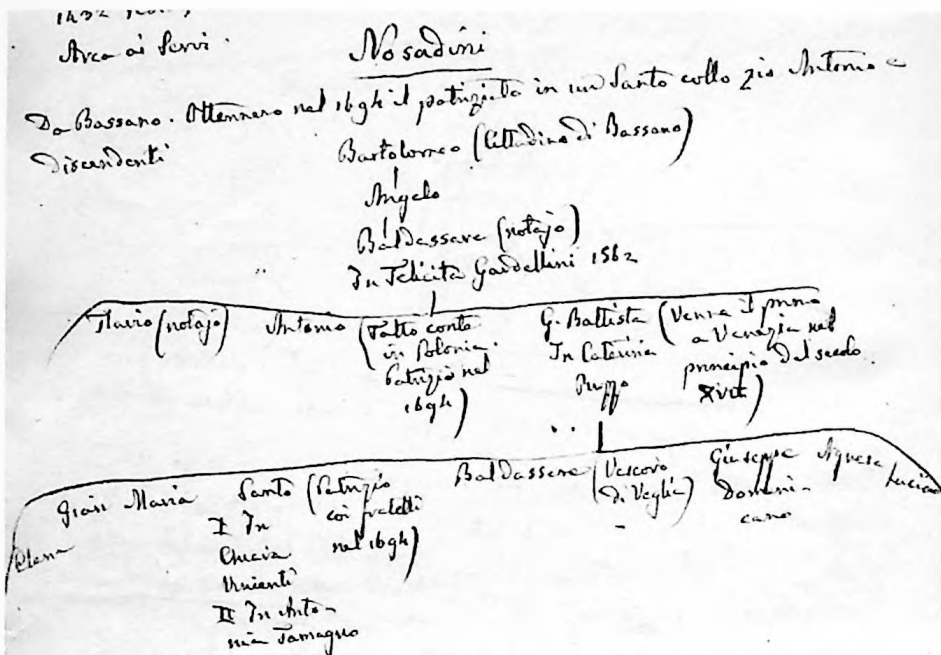 1432
Arca ai Servi.
Nosadini
Da Bassano. Ottennero nel 1694 il patriziato in un Santo collo zio Antonio e
Discendenti
Bartolomeo (Cittadino di Bassano)
Angelo
Baldassare (notajo)
In Felicita Gardellini 1562
Flavio (notajo) Antonio (Fatto conte in Polonia. Patrizio nel 1694) G. Battista In Caterina (Venne il primo a Venezia nel principio del secolo XVII)
Elena Gian Maria Santo (Patrizio coi fratelli nel 1694) Baldassare (Vescovo di Veglia) Giuseppe Domenicano Agnese Luciano
I In
Chiara
II In Antonia Tamagno